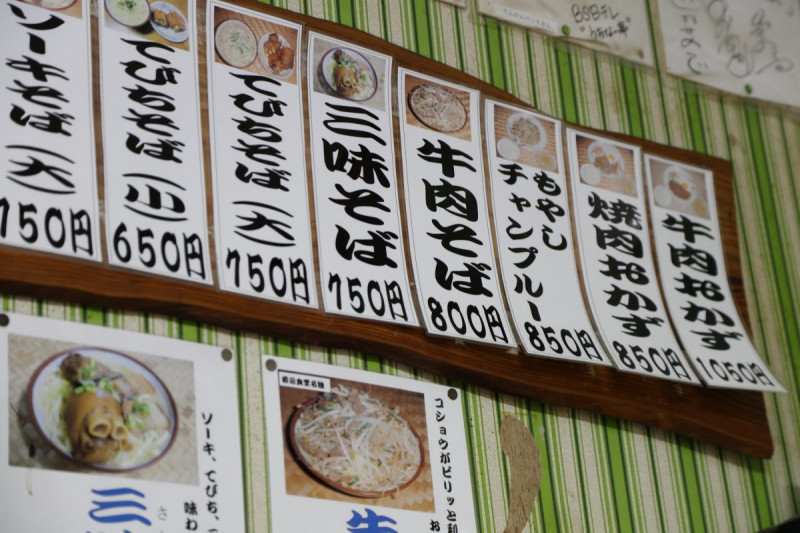 ソーキそば(大)
750円
てびちそば(小)
650円
てびちそば(大)
750円
三味そば
750円
牛肉そば
800円
もやし
チャンプルー
850円
焼肉おかず
850円
牛肉おかず
1050円
BSBテレ
ソーキ、てびち、
味わ
三
さん
前田食堂名物
コショウがピリッと利
お
牛